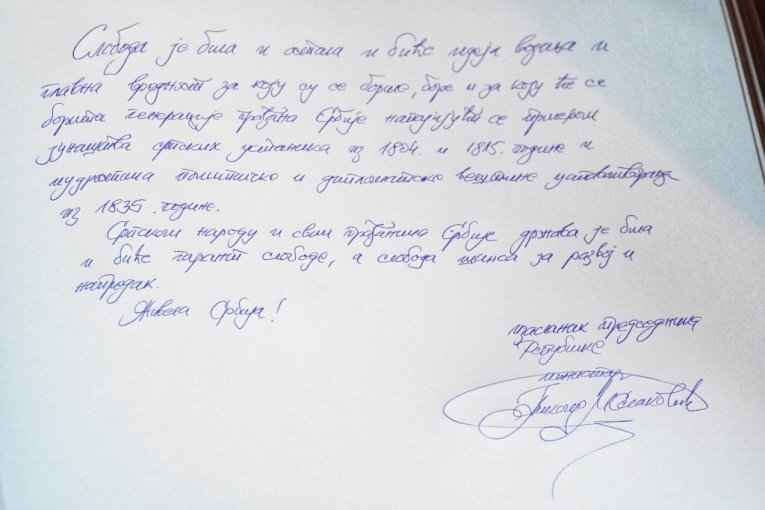 Слобода је била и остала и биће идеја водиља и
главна вредност за коју су се бориле, боре и за коју ће се
борити генерације грађана Србије напајајући се примером
јунаштва српских устаника из 1804. и 1815. године и
мудростима политичке и дипломатске вештине уставотвораца
из 1835. године.
Српском народу и свим грађанима Србије држава је била
и биће гарант слободе, а слобода шанса за развој и
напредак.
Живела Србија!
изасланик председника
Републике
министар